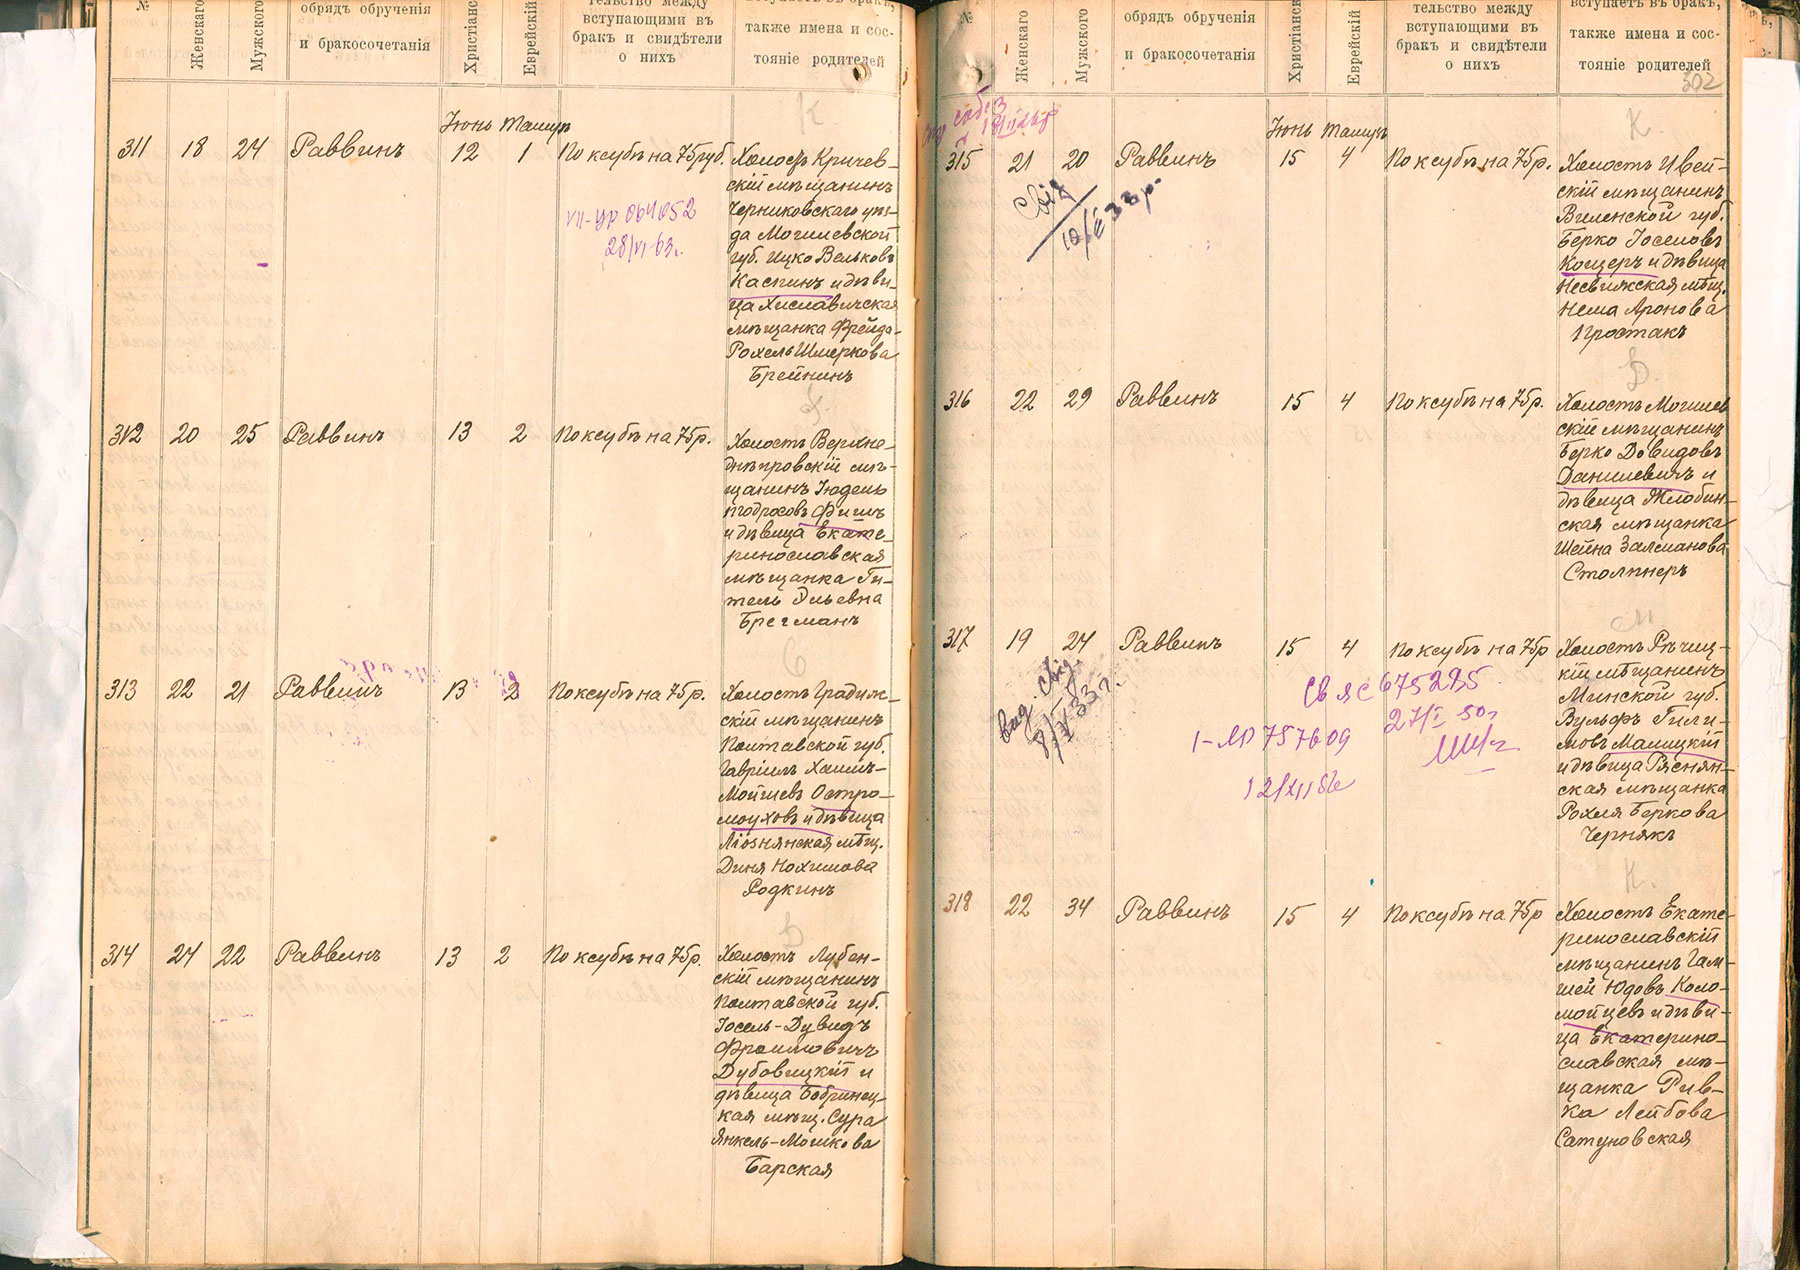 №
Женскаго
Мужского
обрядъ обрученія
и бракосочетанія
Христіанс
Еврейскій
тельство между
вступающими въ
бракъ и свидѣтели
о нихъ
вступаетъ въ бракъ,
также имена и сос-
тояніе родителей
К.
Іюнь Тамуз
311 18 24 Раввинъ 12 1 По ксубѣ на 75 руб.
Холостъ Кричев-
скій мѣщанинъ
Чериковскаго уѣз-
да Могилевской
губ. Ицко Вельковъ
Каснинъ и дѣви-
ца Хиславичская
мѣщанка Фрейда-
Рохель Шмеркова
Брейнинъ
VII-УР 064052
28/VI 63г.
312 20 25 Раввинъ 13 2 По ксубѣ на 75 р.
Холостъ Верхне-
днѣпровскій мѣ-
щанинъ Іюдель
Фишъ
и дѣвица Екате-
ринославская
мѣщанка Ги-
тель Эльевна
Брегманъ
С
313 22 21 Раввинъ 13 2 По ксубѣ на 75 р.
Холостъ Градиж-
скій мѣщанинъ
Полтавской губ.
Гавріилъ Хаимъ-
Мойшевъ Остро-
моуховъ и дѣвица
Ліознянская мѣщ.
Диня Нохимова
Родкинъ
314 24 22 Раввинъ 13 2 По ксубѣ на 75 р.
Холостъ Лубен-
скій мѣщанинъ
Полтавской губ.
Іосель-Дувидъ
Фроимовичъ
Дубовицкій и
дѣвица Бобринец-
кая мѣщ. Сура
Янкель-Мошкова
Барская
№
Женскаго
Мужского
обрядъ обрученія
и бракосочетанія
Христіанс
Еврейскій
тельство между
вступающими въ
бракъ и свидѣтели
о нихъ
вступаетъ въ бракъ,
также имена и сос-
тояніе родителей
302
К.
Іюнь Тамузъ
315 21 20 Раввинъ 15 4 По ксубѣ на 75 р.
Холостъ Ивей-
скій мѣщанинъ
Виленской губ.
Берко Іоселовъ
Коцеръ и дѣвица
Несвижская мѣщ.
Нема Аронова
Простакъ
Свід
33 р.
Д.
316 22 29 Раввинъ 15 4 По ксубѣ на 75 р.
Холостъ Могилев
скій мѣщанинъ
Берко Довидовъ
Данилевичъ и
дѣвица Жлобин-
ская мѣщанка
Шейна Залманова
Столпнеръ
М.
317 19 24 Раввинъ 15 4 По ксубѣ на 75 р
Холостъ Рѣчиц-
кій мѣщанинъ
Минской губ.
Вульфъ Гили-
мовъ Малицкій
и дѣвица Ряснян-
ская мѣщанка
Рохля Беркова
Чернякъ
вид. свід.
8/V 33 г.
СВ ЯС 675295
27/I 50г
1-ЛП 757609
12/XII 56г
К.
318 22 34 Раввинъ 15 4 По ксубѣ на 75 р
Холостъ Екате-
ринославскій
мѣщанинъ Гам-
шей Юдовъ Коло-
мойцевъ и дѣви-
ца Екатерино-
славская мѣ-
щанка Рив-
ка Лейбова
Сатуновская